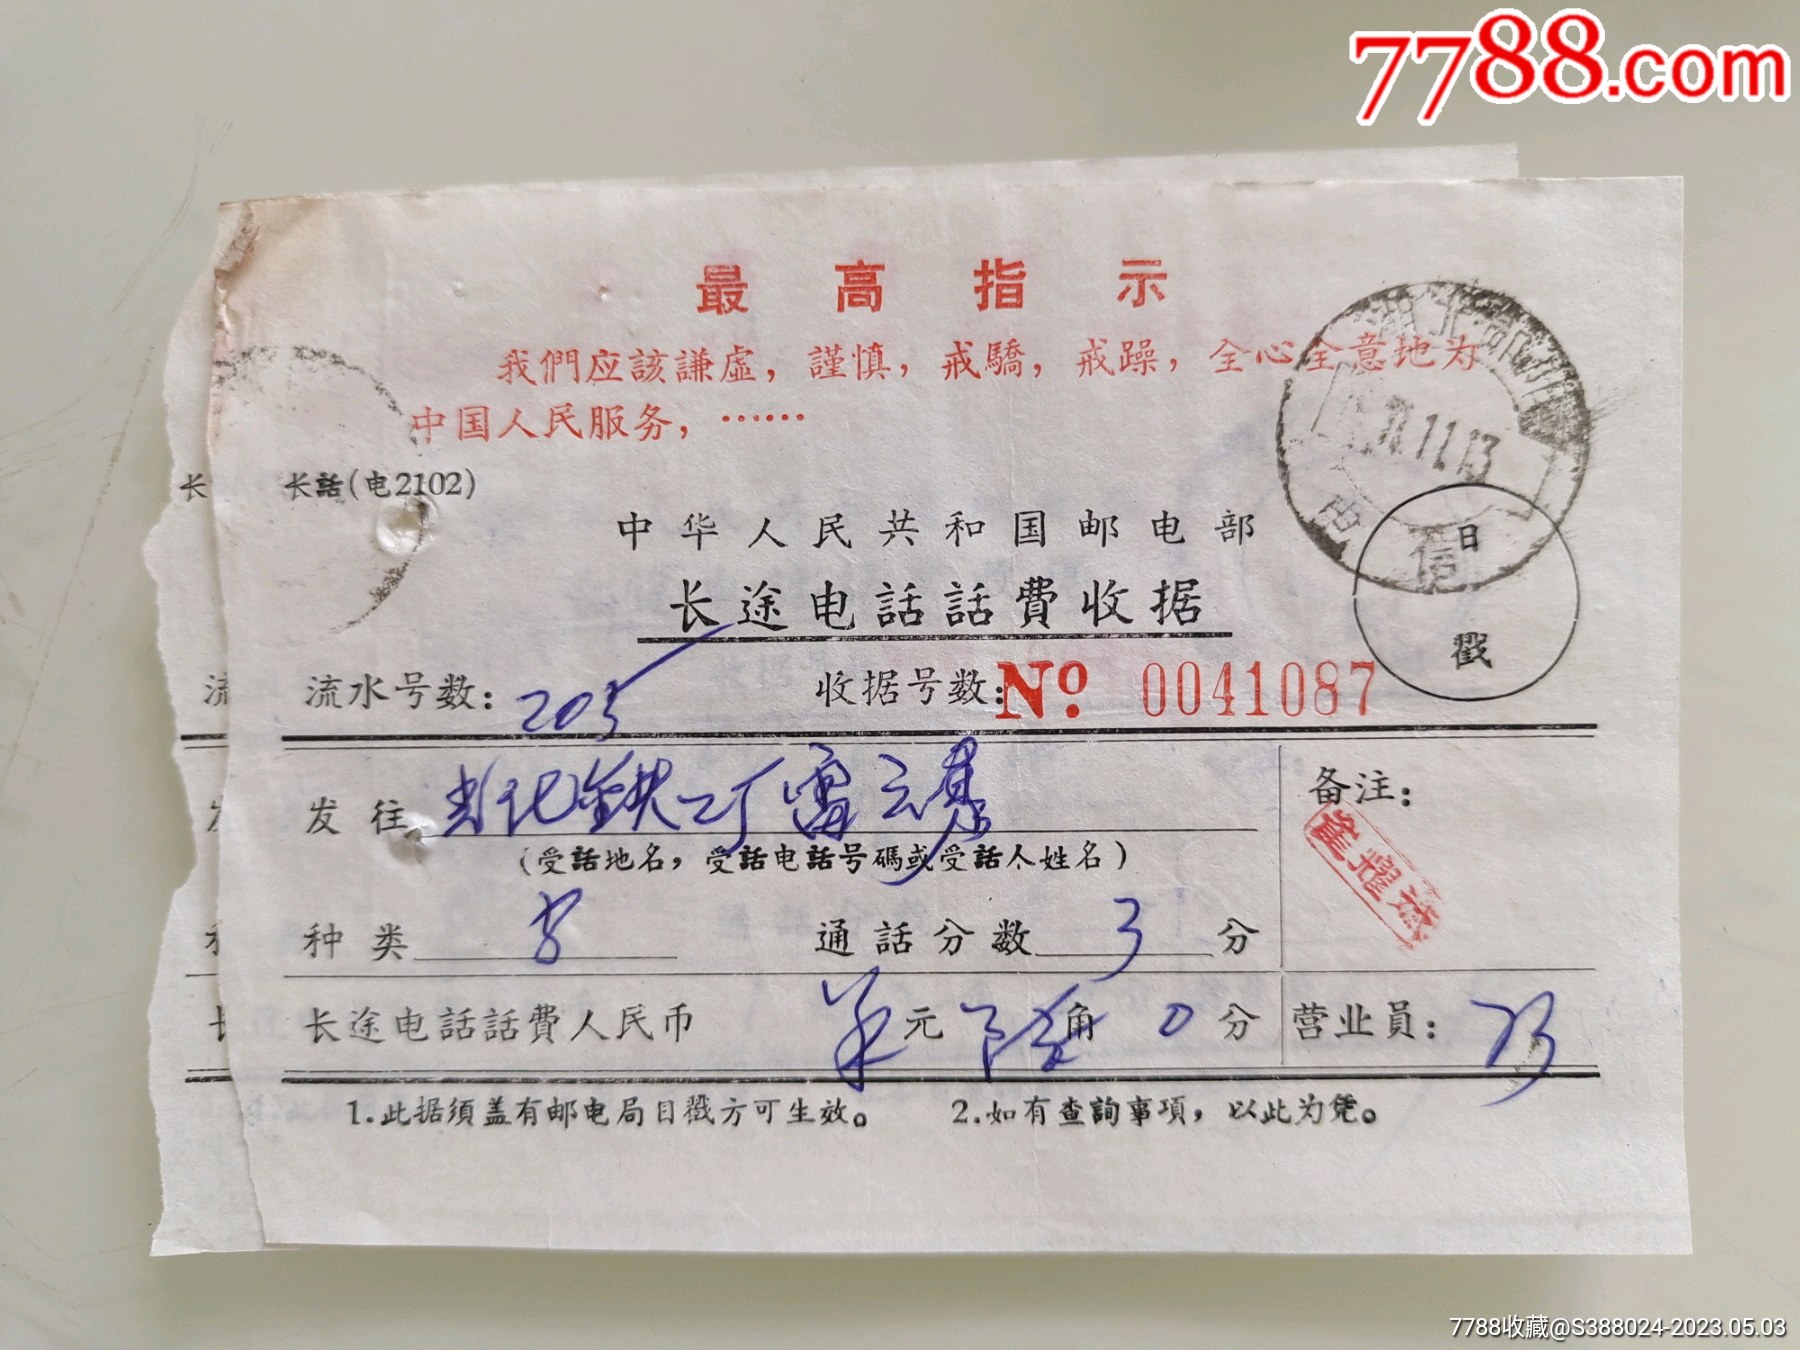 7788.com
最高指示
我們应該謙虛，謹慎，戒驕，戒躁，全心全意地为
中国人民服务，……
长 长話(电2102)
71.11.13
电信
中华人民共和国邮电部
长途电話話費收据
日
戳
流 流水号数：205 收据号数：№ 0041087
发往 化铁 雷云 备注：
(受話地名，受話电話号碼或受話人姓名)
崔耀斌
种类 通話分数 3 分
长途电話話費人民币 元 陆角 0 分 营业员：
1.此据須盖有邮电局日戳方可生效。 2.如有查詢事項，以此为凭。
7788收藏@S388024-2023.05.03